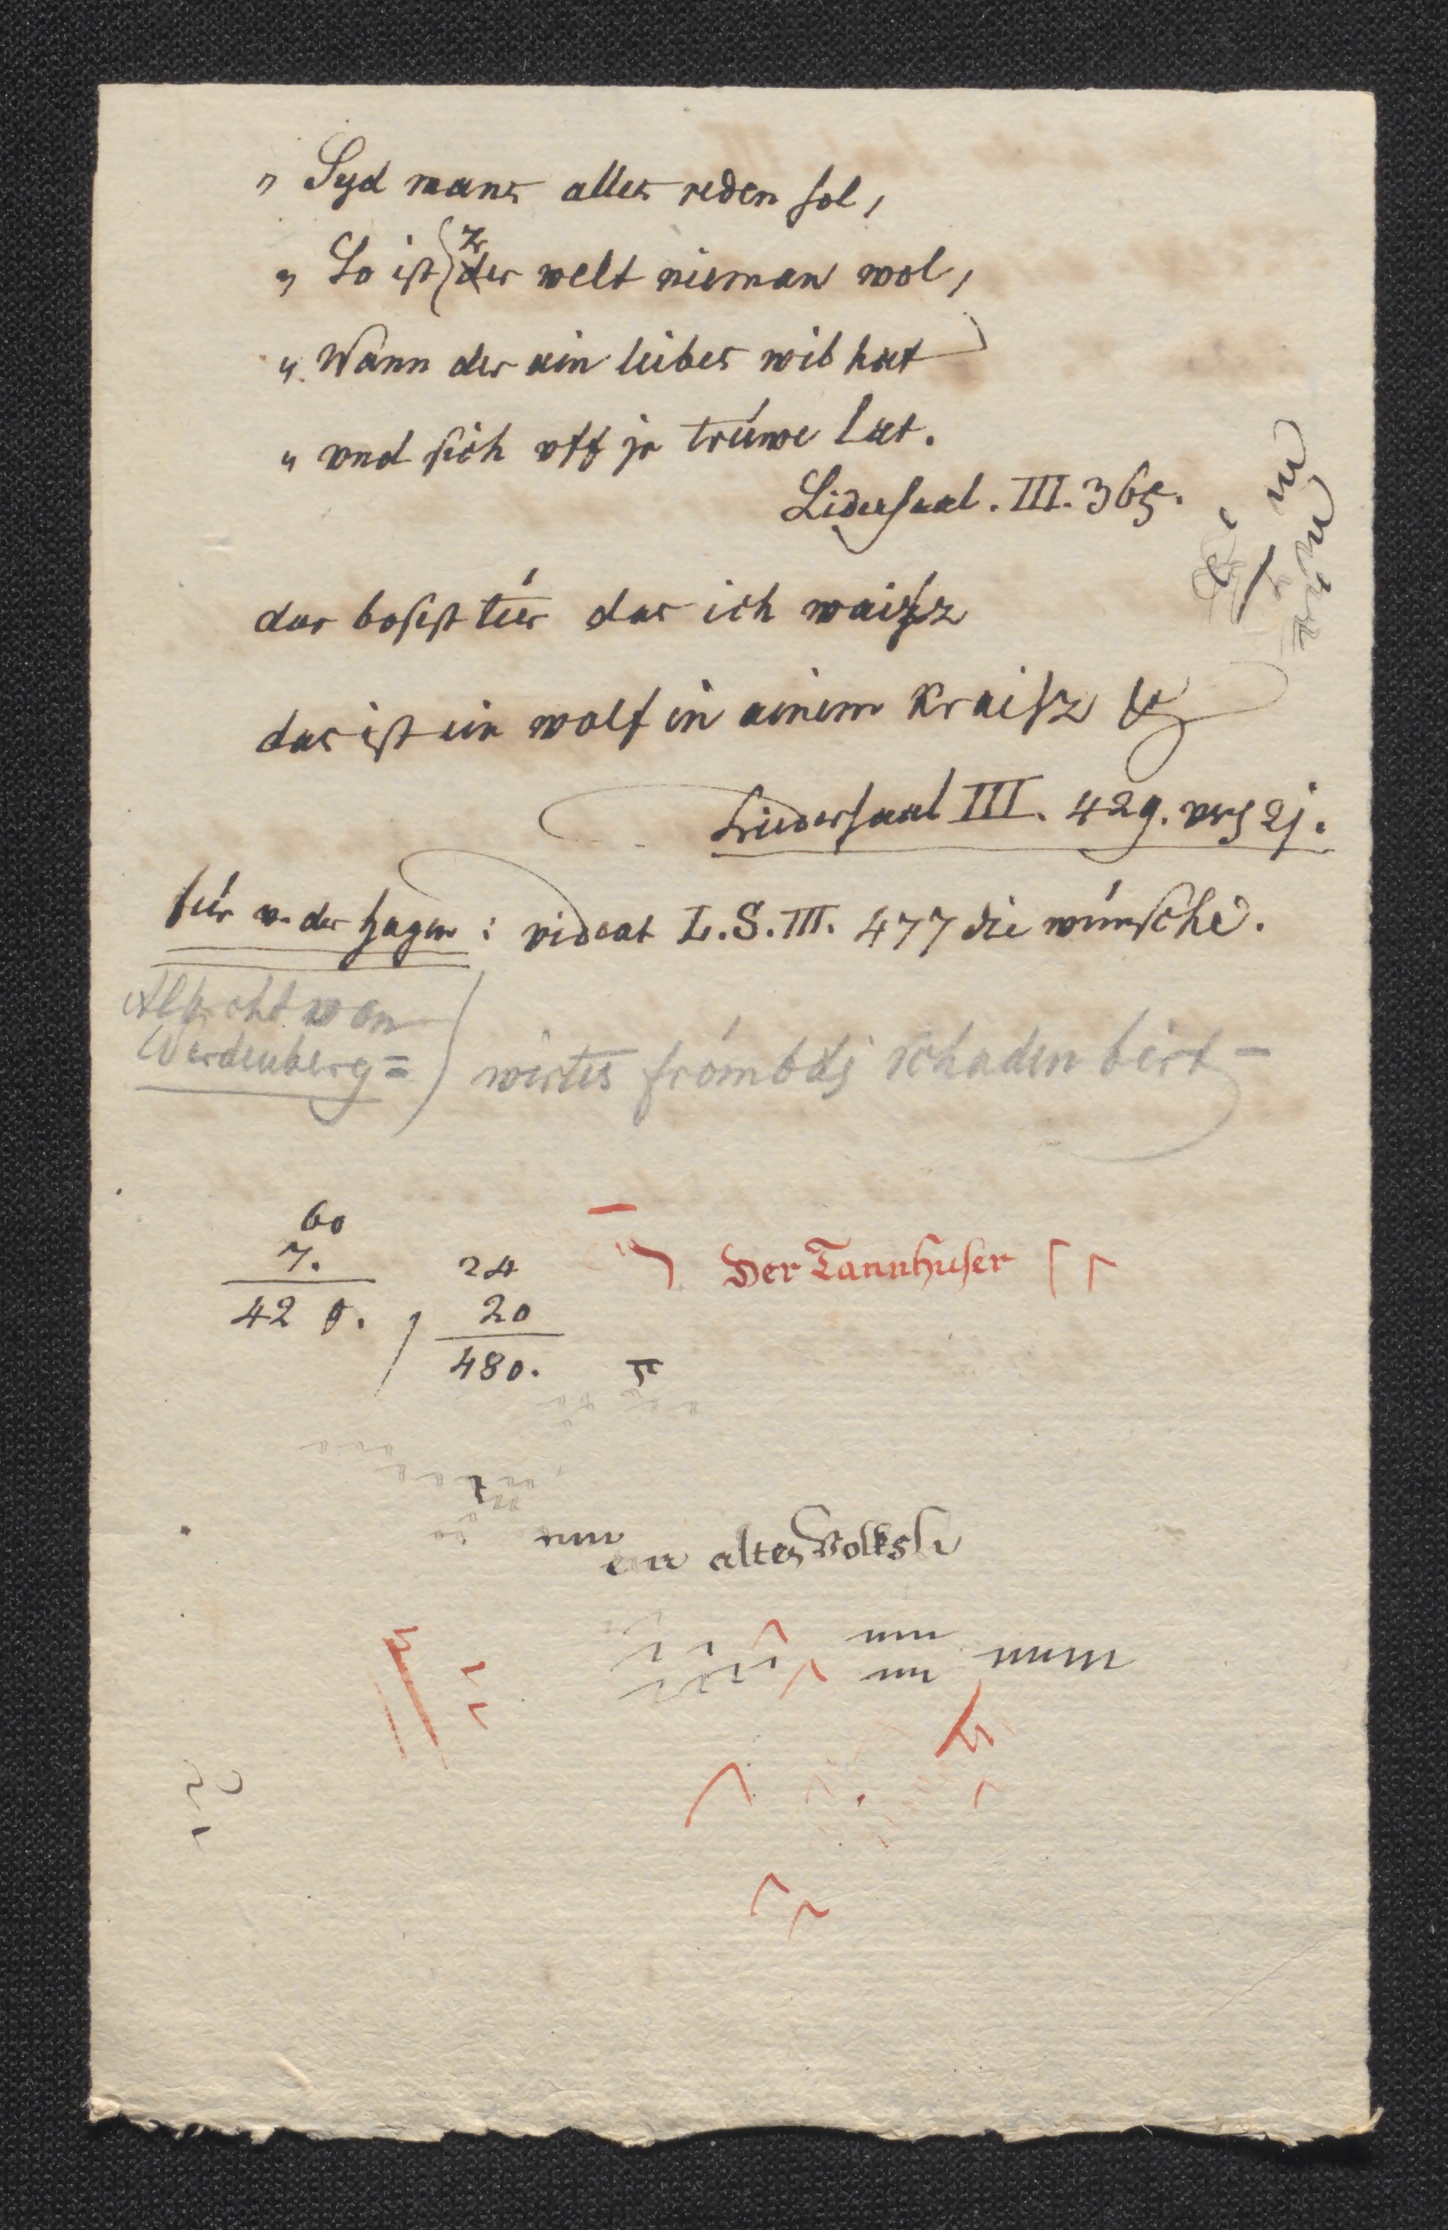 „ Syd mans alles reden sol,
„ So ist zer welt nieman wol,
„ Wann der ain liebes wib hat
„ vnd sich vff jr trúwe lat.
Lidersaal. III. 365.
das bosest tier das ich waisz
das ist ein wolf in ainem kraisz
Liedersaal III. 429. vers 21.
für v. der Hagen : videat L. S. III. 477 die wúnsche.
Albrcht von
Werdenberg =
wirtes frómbds schaden birt –
60
7.
420.
24
20
480.
Der Tannhuser
num
ein altes Volksli
num
nn
num